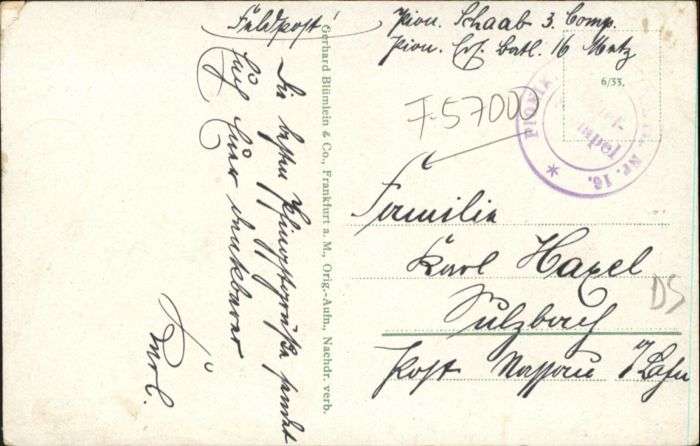 Feldpost!
Pion. Schaab 3. Comp.
Pion. Ers. Batl. 16 Metz
6/33.
F-57000
PIONIER Nr. 16.
Familie
Karl Haxel
Sulzbach
Post Nassau a/Lahn
DS
Die besten Pfingstgrüße sendet
Euch Euer dankbarer
Karl.
Gerhard Blümlein & Co., Frankfurt a. M., Orig.-Aufn., Nachdr. verb.